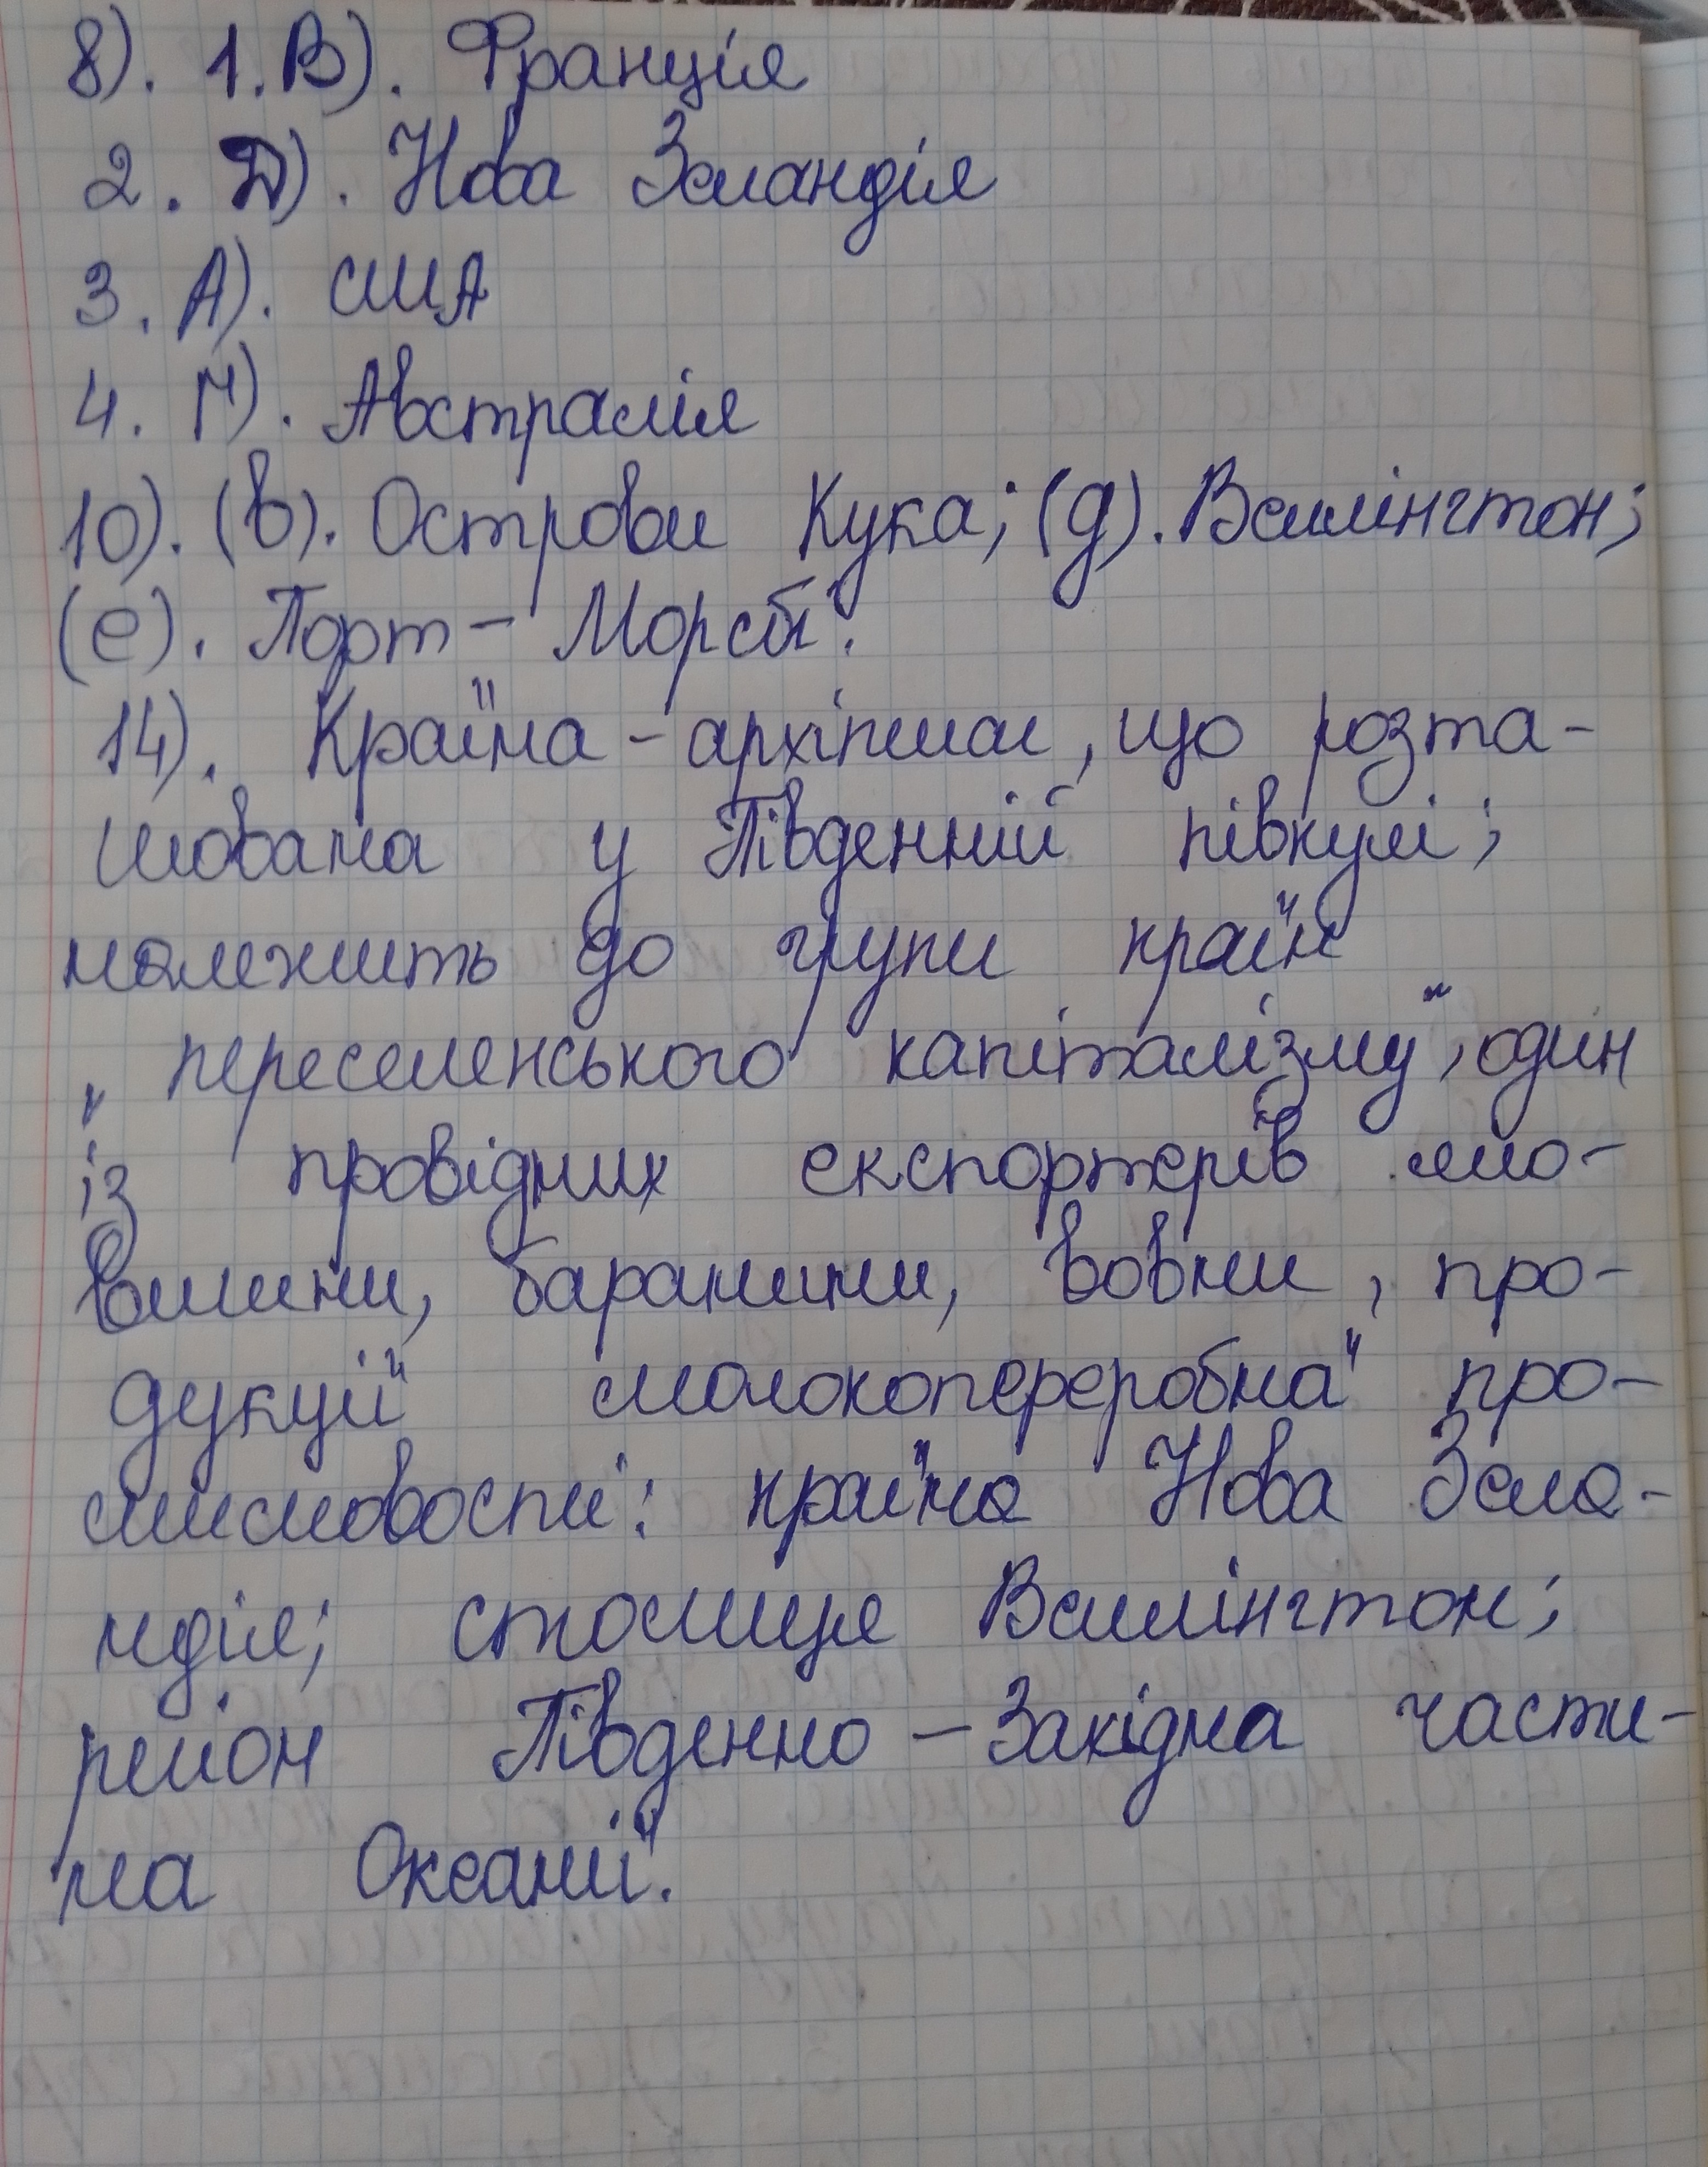 8). 1. В). Франція
2. Д). Нова Зеландія
3. А). США
4. Г). Австралія
10). (в). Острови Кука; (д). Веллінгтон;
(е). Порт - Морсбі.
14). Країна - архіпелаг, що розта-
шована у Південній півкулі;
належить до групи країн
„переселенського капіталізму“, один
із провідних експортерів яло-
вичини, баранини, вовни, про-
дукції молокопереробна про-
мисловості: країна Нова Зела-
ндія; столиця Веллінгтон;
регіон Південно - Західна части-
на Океанії.